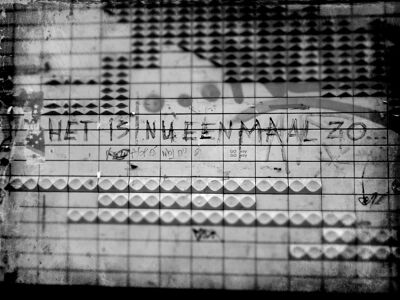 HET IS NU EENMAAL ZO...